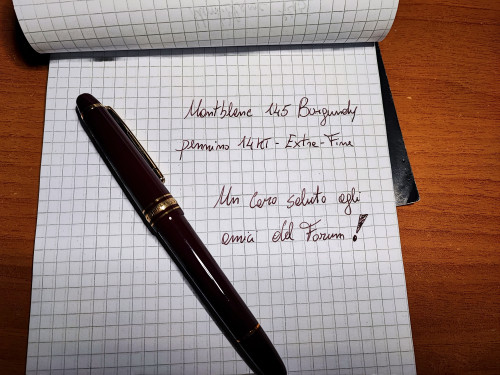 Montblanc 145 Burgundy
pennino 14KT - Extra-Fine
Un caro saluto agli
amici del Forum!